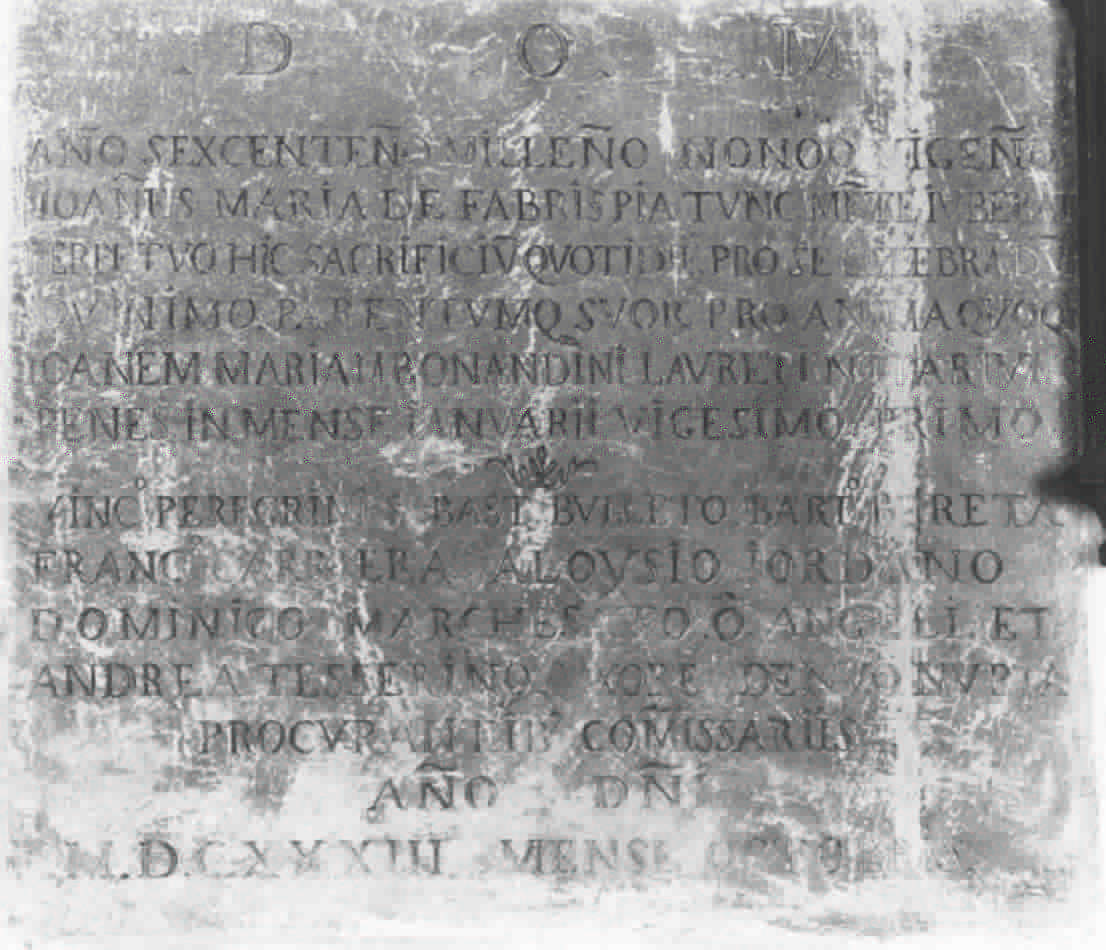 D O M
AÑO SEXCENTEÑO MILLEÑO NONOQ VIGEÑO
IOAÑUS MARIA DE FABRIS PIA TVNC MẼTE IVBERAT
PERPETVO HIC SACRIFICIV̄ QVOTIDIE PRO SE CELEBRADV̄
PARENTVMQ SVOR PRO ANIMA QVOQ
IOANEM MARIAM BONANDINI LAVRETI NOTARIVM
PENES IN MENSE IANVARII VIGESIMO PRIMO
VINCº PEREGRINUS BAST BVLLETO BARTº BERETA
FRANC CARRIERA ALOVSIO IORDANO
DOMINICO ANGELI ET
ANDREA TESSERINO VXORE DENVO NVPTA
PROCVRANTIB COM̃ISSARIIS
AÑO DÑI
M.D.C.XXXIII MENSE OCTUBRIS